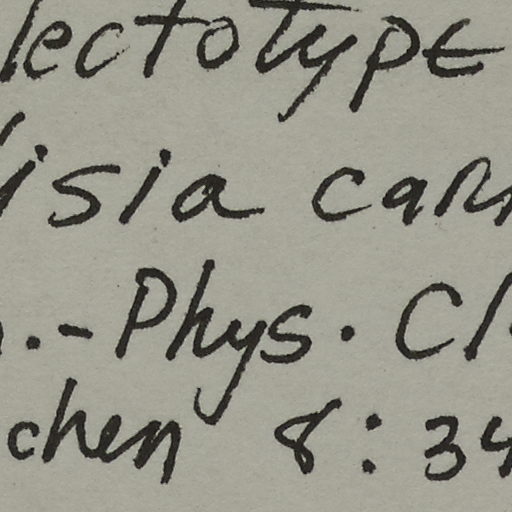 lectotype
isia car
.- Phys. Cl.
chen 8: 34